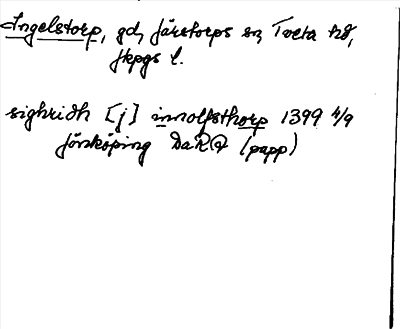 Ingelstorp, gd, Järstorps sn, Tveta hd,
Jkpgs l.
sighridh [j] innolfsthorp 1399 4/9
Jönköping DaRA (papp)